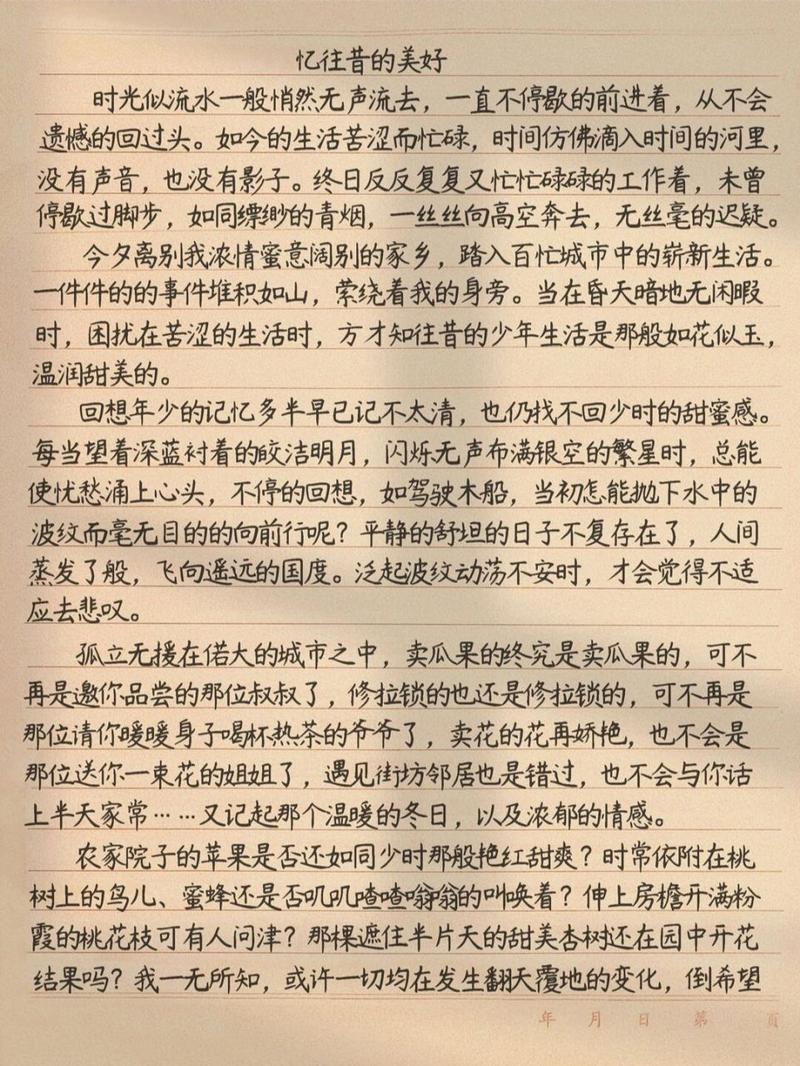 忆往昔的美好
时光似流水一般悄然无声流去，一直不停歇的前进着，从不会
遗憾的回过头。如今的生活苦涩而忙碌，时间仿佛滴入时间的河里，
没有声音，也没有影子。终日反反复复又忙忙碌碌的工作着，未曾
停歇过脚步，如同缥缈的青烟，一丝丝向高空奔去，无丝毫的迟疑。
今夕离别我浓情蜜意阔别的家乡，踏入百忙城市中的崭新生活。
一件件的的事件堆积如山，萦绕着我的身旁。当在昏天暗地无闲暇
时，困扰在苦涩的生活时，方才知往昔的少年生活是那般如花似玉，
温润甜美的。
回想年少的记忆多半早已记不太清，也仍找不回少时的甜蜜感。
每当望着深蓝衬着的皎洁明月，闪烁无声布满银空的繁星时，总能
使忧愁涌上心头，不停的回想，如驾驶木船，当初怎能抛下水中的
波纹而毫无目的的向前行呢？平静的舒坦的日子不复存在了，人间
蒸发了般，飞向遥远的国度。泛起波纹动荡不安时，才会觉得不适
应去悲叹。
孤立无援在偌大的城市之中，卖瓜果的终究是卖瓜果的，可不
再是邀你品尝的那位叔叔了，修拉锁的也还是修拉锁的，可不再是
那位请你暖暖身子喝杯热茶的爷爷了，卖花的花再娇艳，也不会是
那位送你一束花的姐姐了，遇见街坊邻居也是错过，也不会与你话
上半天家常……又记起那个温暖的冬日，以及浓郁的情感。
农家院子的苹果是否还如同少时那般艳红甜爽？时常依附在桃
树上的鸟儿、蜜蜂还是否叽叽喳喳嗡嗡的叫唤着？伸上房檐开满粉
霞的桃花枝可有人问津？那棵遮住半片天的甜美杏树还在园中开花
结果吗？我一无所知，或许一切均在发生翻天覆地的变化，倒希望
年 月 日 第 页